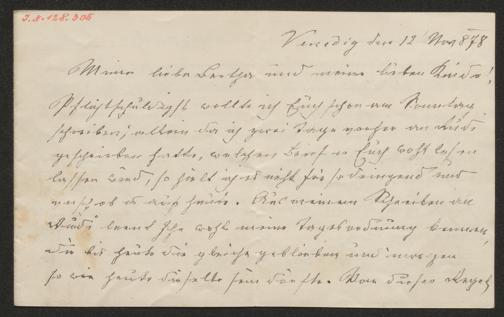 J.N. 128.306
Venedig den 12 Nov 878
Meine liebe Bertha und meine lieben Kinder!
Pflichtschuldigst wollte ich Euch schon am Sonntag
schreiben, allein da ich zwei Tage vorher an Rudi
geschrieben hatte, welchen Brief er Euch wohl lesen
lassen wird, so hielt ich es nicht für so dringend und
verschob es auf heute. Aus meinem Schreiben an
Rudi lernt Ihr wohl meine Tagesordnung kennen,
die bis heute die gleiche geblieben und morgen
so wie heute dieselbe sein dürfte. Von dieser Regel